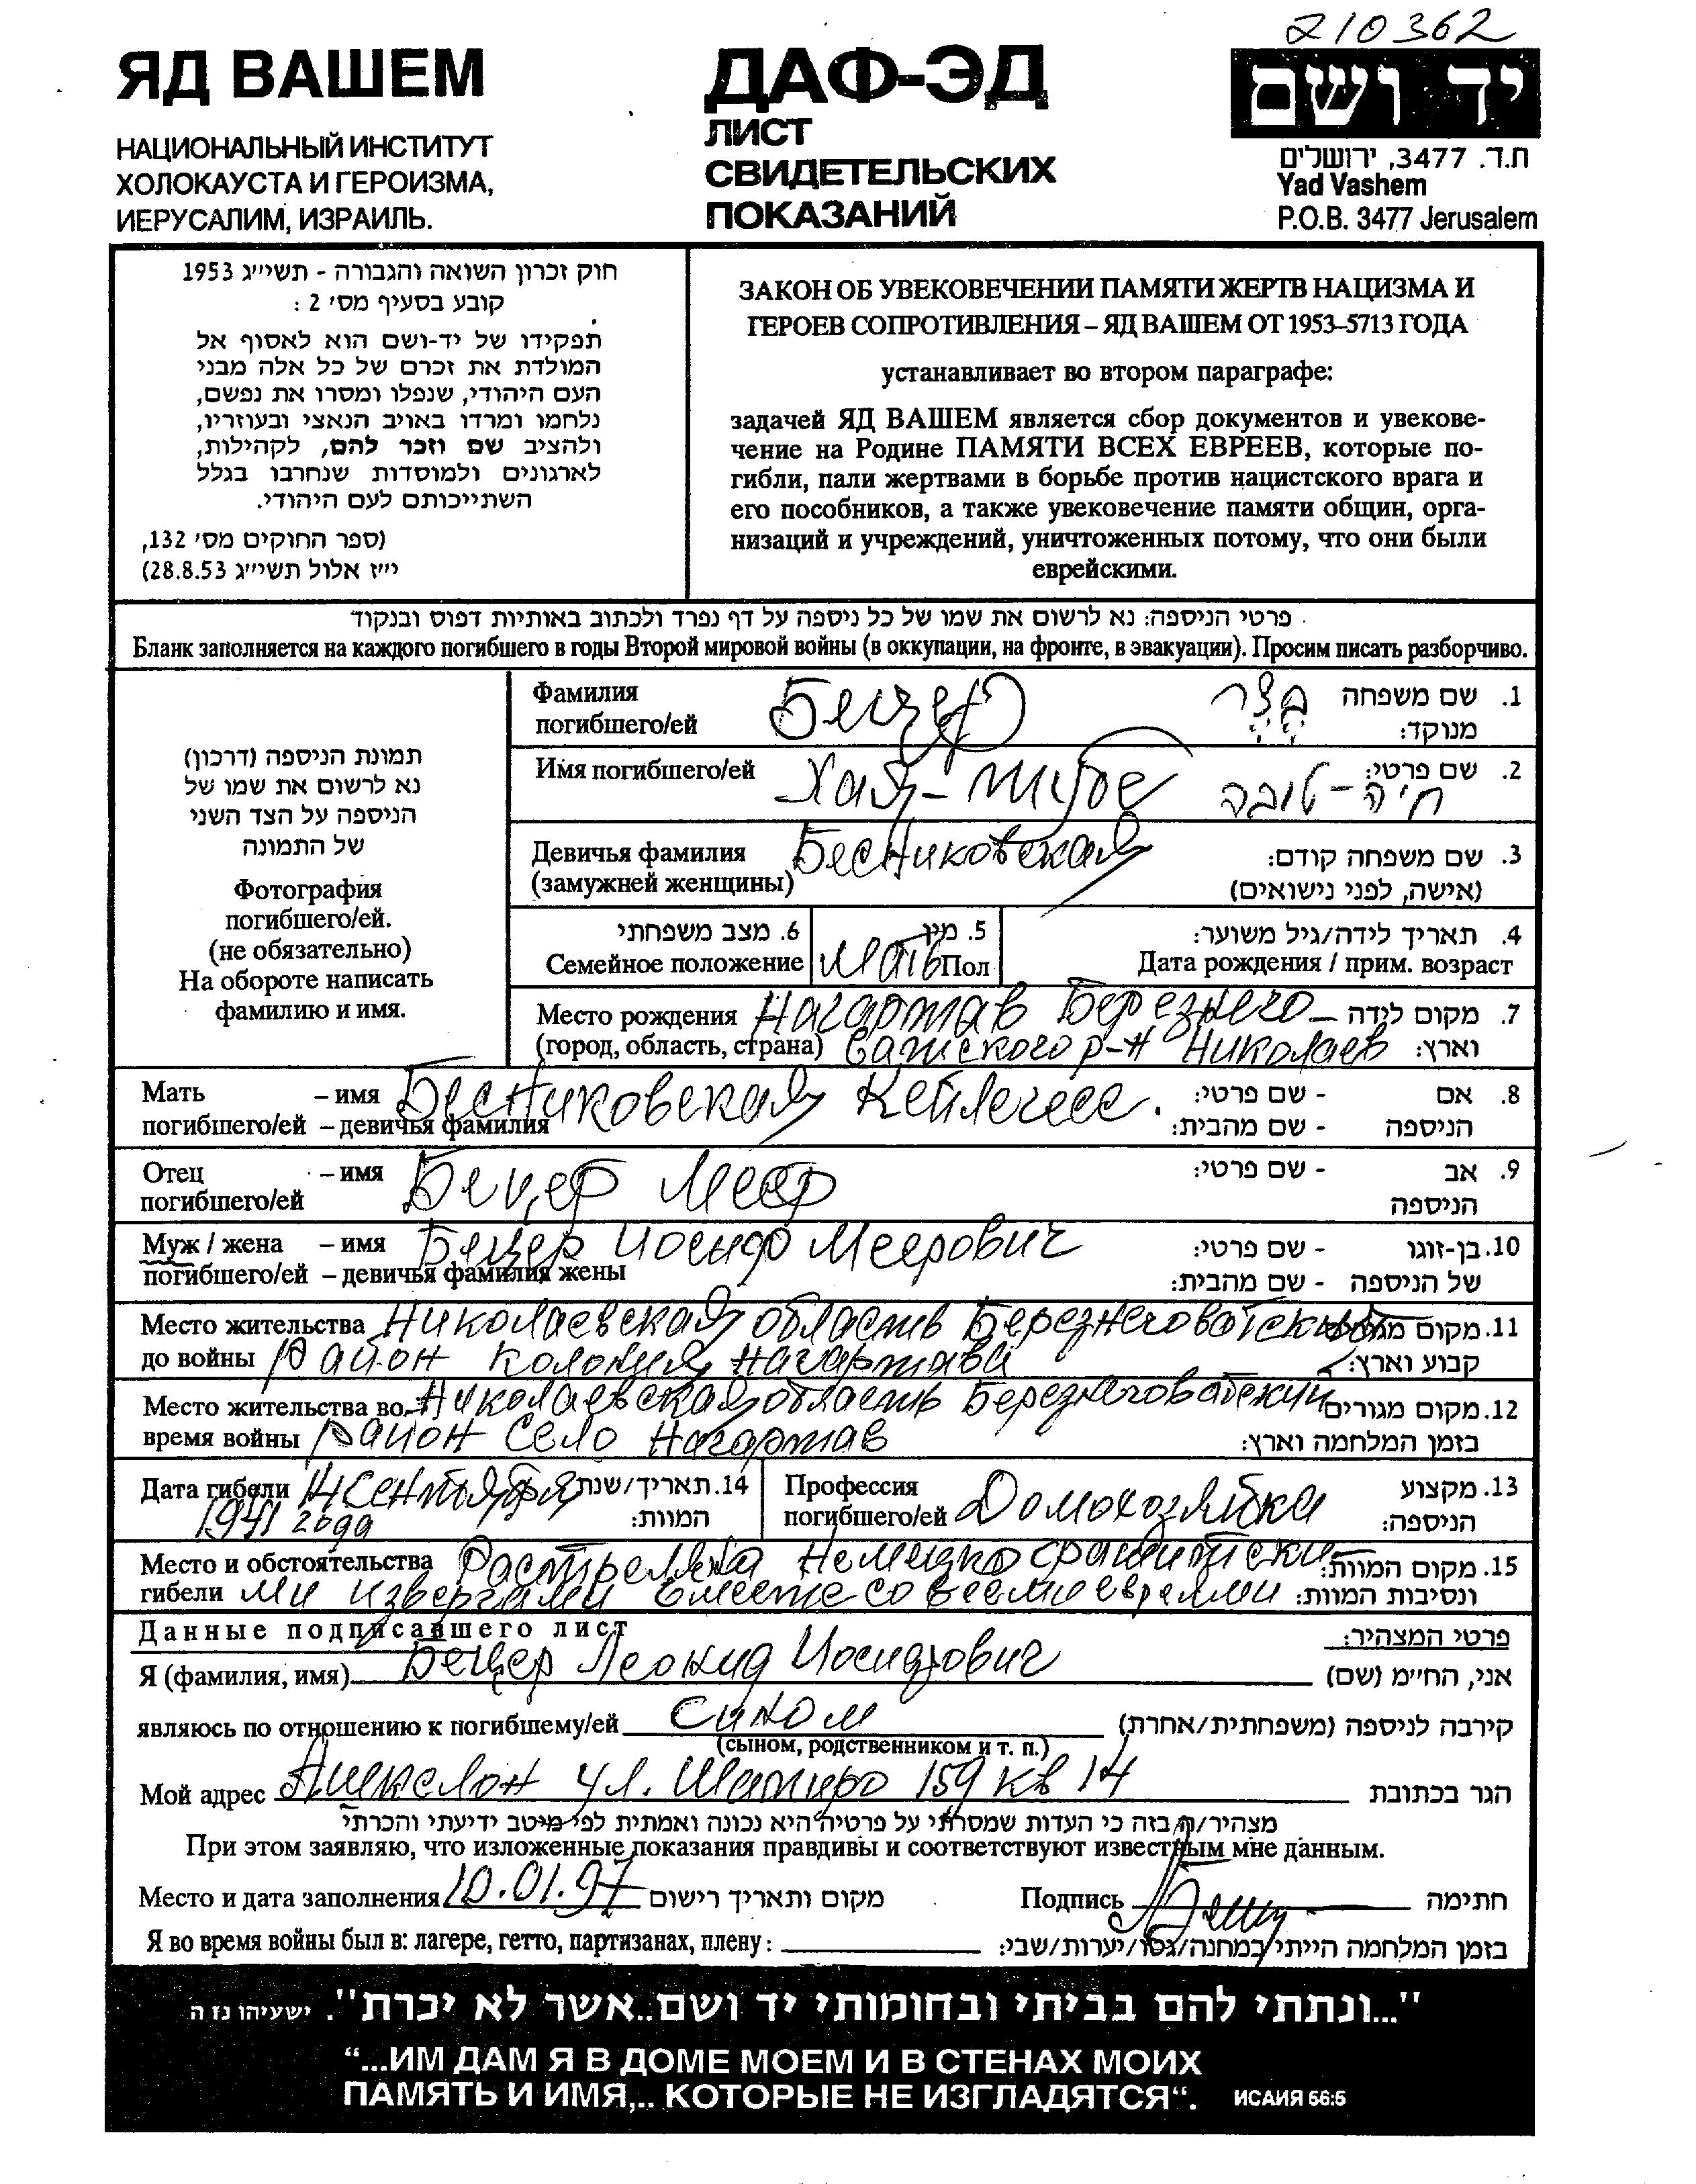 210362
ЯД ВАШЕМ
НАЦИОНАЛЬНЫЙ ИНСТИТУТ
ХОЛОКАУСТА И ГЕРОИЗМА,
ИЕРУСАЛИМ, ИЗРАИЛЬ.
ДАФ-ЭД
ЛИСТ
СВИДЕТЕЛЬСКИХ
ПОКАЗАНИЙ
יד ושם
ת.ד. 3477, ירושלים
Yad Vashem
P.O.B. 3477 Jerusalem
חוק זכרון השואה והגבורה - תשי״ג 1953
קובע בסעיף מס׳ 2 :
תפקידו של יד-ושם הוא לאסוף אל
המולדת את זכרם של כל אלה מבני
העם היהודי, שנפלו ומסרו את נפשם,
נלחמו ומרדו באויב הנאצי ובעוזריו,
ולהציב שם וזכר להם, לקהילות,
לארגונים ולמוסדות שנחרבו בגלל
השתייכותם לעם היהודי.
(ספר החוקים מס׳ 132,
י״ז אלול תשי״ג 28.8.53)
ЗАКОН ОБ УВЕКОВЕЧЕНИИ ПАМЯТИ ЖЕРТВ НАЦИЗМА И
ГЕРОЕВ СОПРОТИВЛЕНИЯ – ЯД ВАШЕМ ОТ 1953–5713 ГОДА
устанавливает во втором параграфе:
задачей ЯД ВАШЕМ является сбор документов и увекове-
чение на Родине ПАМЯТИ ВСЕХ ЕВРЕЕВ, которые по-
гибли, пали жертвами в борьбе против нацистского врага и
его пособников, а также увековечение памяти общин, орга-
низаций и учреждений, уничтоженных потому, что они были
еврейскими.
פרטי הניספה: נא לרשום את שמו של כל ניספה על דף נפרד ולכתוב באותיות דפוס ובנקוד
Бланк заполняется на каждого погибшего в годы Второй мировой войны (в оккупации, на фронте, в эвакуации). Просим писать разборчиво.
תמונת הניספה (דרכון)
נא לרשום את שמו של
הניספה על הצד השני
של התמונה
Фотография
погибшего/ей.
(не обязательно)
На обороте написать
фамилию и имя.
Фамилия Бецер בצר 1. שם משפחה
погибшего/ей מנוקד:
Имя погибшего/ей Хая-Тубе חיה-טובה 2. שם פרטי:
Девичья фамилия Бесниковская 3. שם משפחה קודם:
(замужней женщины) (אישה, לפני נישואים)
6. מצב משפחתי 5. מין 4. תאריך לידה/גיל משוער:
Семейное положение мать Пол Дата рождения / прим. возраст
Место рождения Нагартав Березнего- 7. מקום לידה
(город, область, страна) ватского р-н Николаев וארץ:
Мать – имя Бесниковская 8. אם - שם פרטי:
погибшего/ей – девичья фамилия הניספה - שם מהבית:
Отец – имя Бецер Меер 9. אב - שם פרטי:
погибшего/ей הניספה
Муж / жена – имя Бецер Меерович 10. בן-זוגו - שם פרטי:
погибшего/ей – девичья фамилия жены של הניספה - שם מהבית:
Место жительства Николаевская область Березнеговатский 11. מקום מגורים
до войны Район колония Нагартава קבוע וארץ:
Место жительства во Николаевская область Березнеговатский 12. מקום מגורים
время войны Район Село Нагартав בזמן המלחמה וארץ:
Дата гибели 14 Сентября 14. תאריך/שנת
1941 года המוות:
Профессия Домохозяйка 13. מקצוע
погибшего/ей הניספה:
Место и обстоятельства Расстреляна Немецко фашистски- 15. מקום המוות:
гибели ми извергами вместе со всеми евреями ונסיבות המוות:
Данные подписавшего лист פרטי המצהיר:
Я (фамилия, имя) Бецер Леонид Иосифович אני, החי״מ (שם)
являюсь по отношению к погибшему/ей сином קירבה לניספה (משפחתית/אחרת)
(сыном, родственником и т. п.)
Мой адрес Ашкелон ул. Шапиро 159 кв 14 הגר בכתובת
מצהיר/ה בזה כי העדות שמסרתי על פרטיה היא נכונה ואמתית לפי מיטב ידיעתי והכרתי
При этом заявляю, что изложенные показания правдивы и соответствуют известным мне данным.
Место и дата заполнения 10.01.97 מקום ותאריך רישום Подпись חתימה
Я во время войны был в: лагере, гетто, партизанах, плену: בזמן המלחמה הייתי במחנה/גטו/יערות/שבי:
"...ונתתי להם בביתי ובחומותי יד ושם...אשר לא יכרת". ישעיהו נז ה
“...ИМ ДАМ Я В ДОМЕ МОЕМ И В СТЕНАХ МОИХ
ПАМЯТЬ И ИМЯ,.. КОТОРЫЕ НЕ ИЗГЛАДЯТСЯ“. ИСАИЯ 56:5